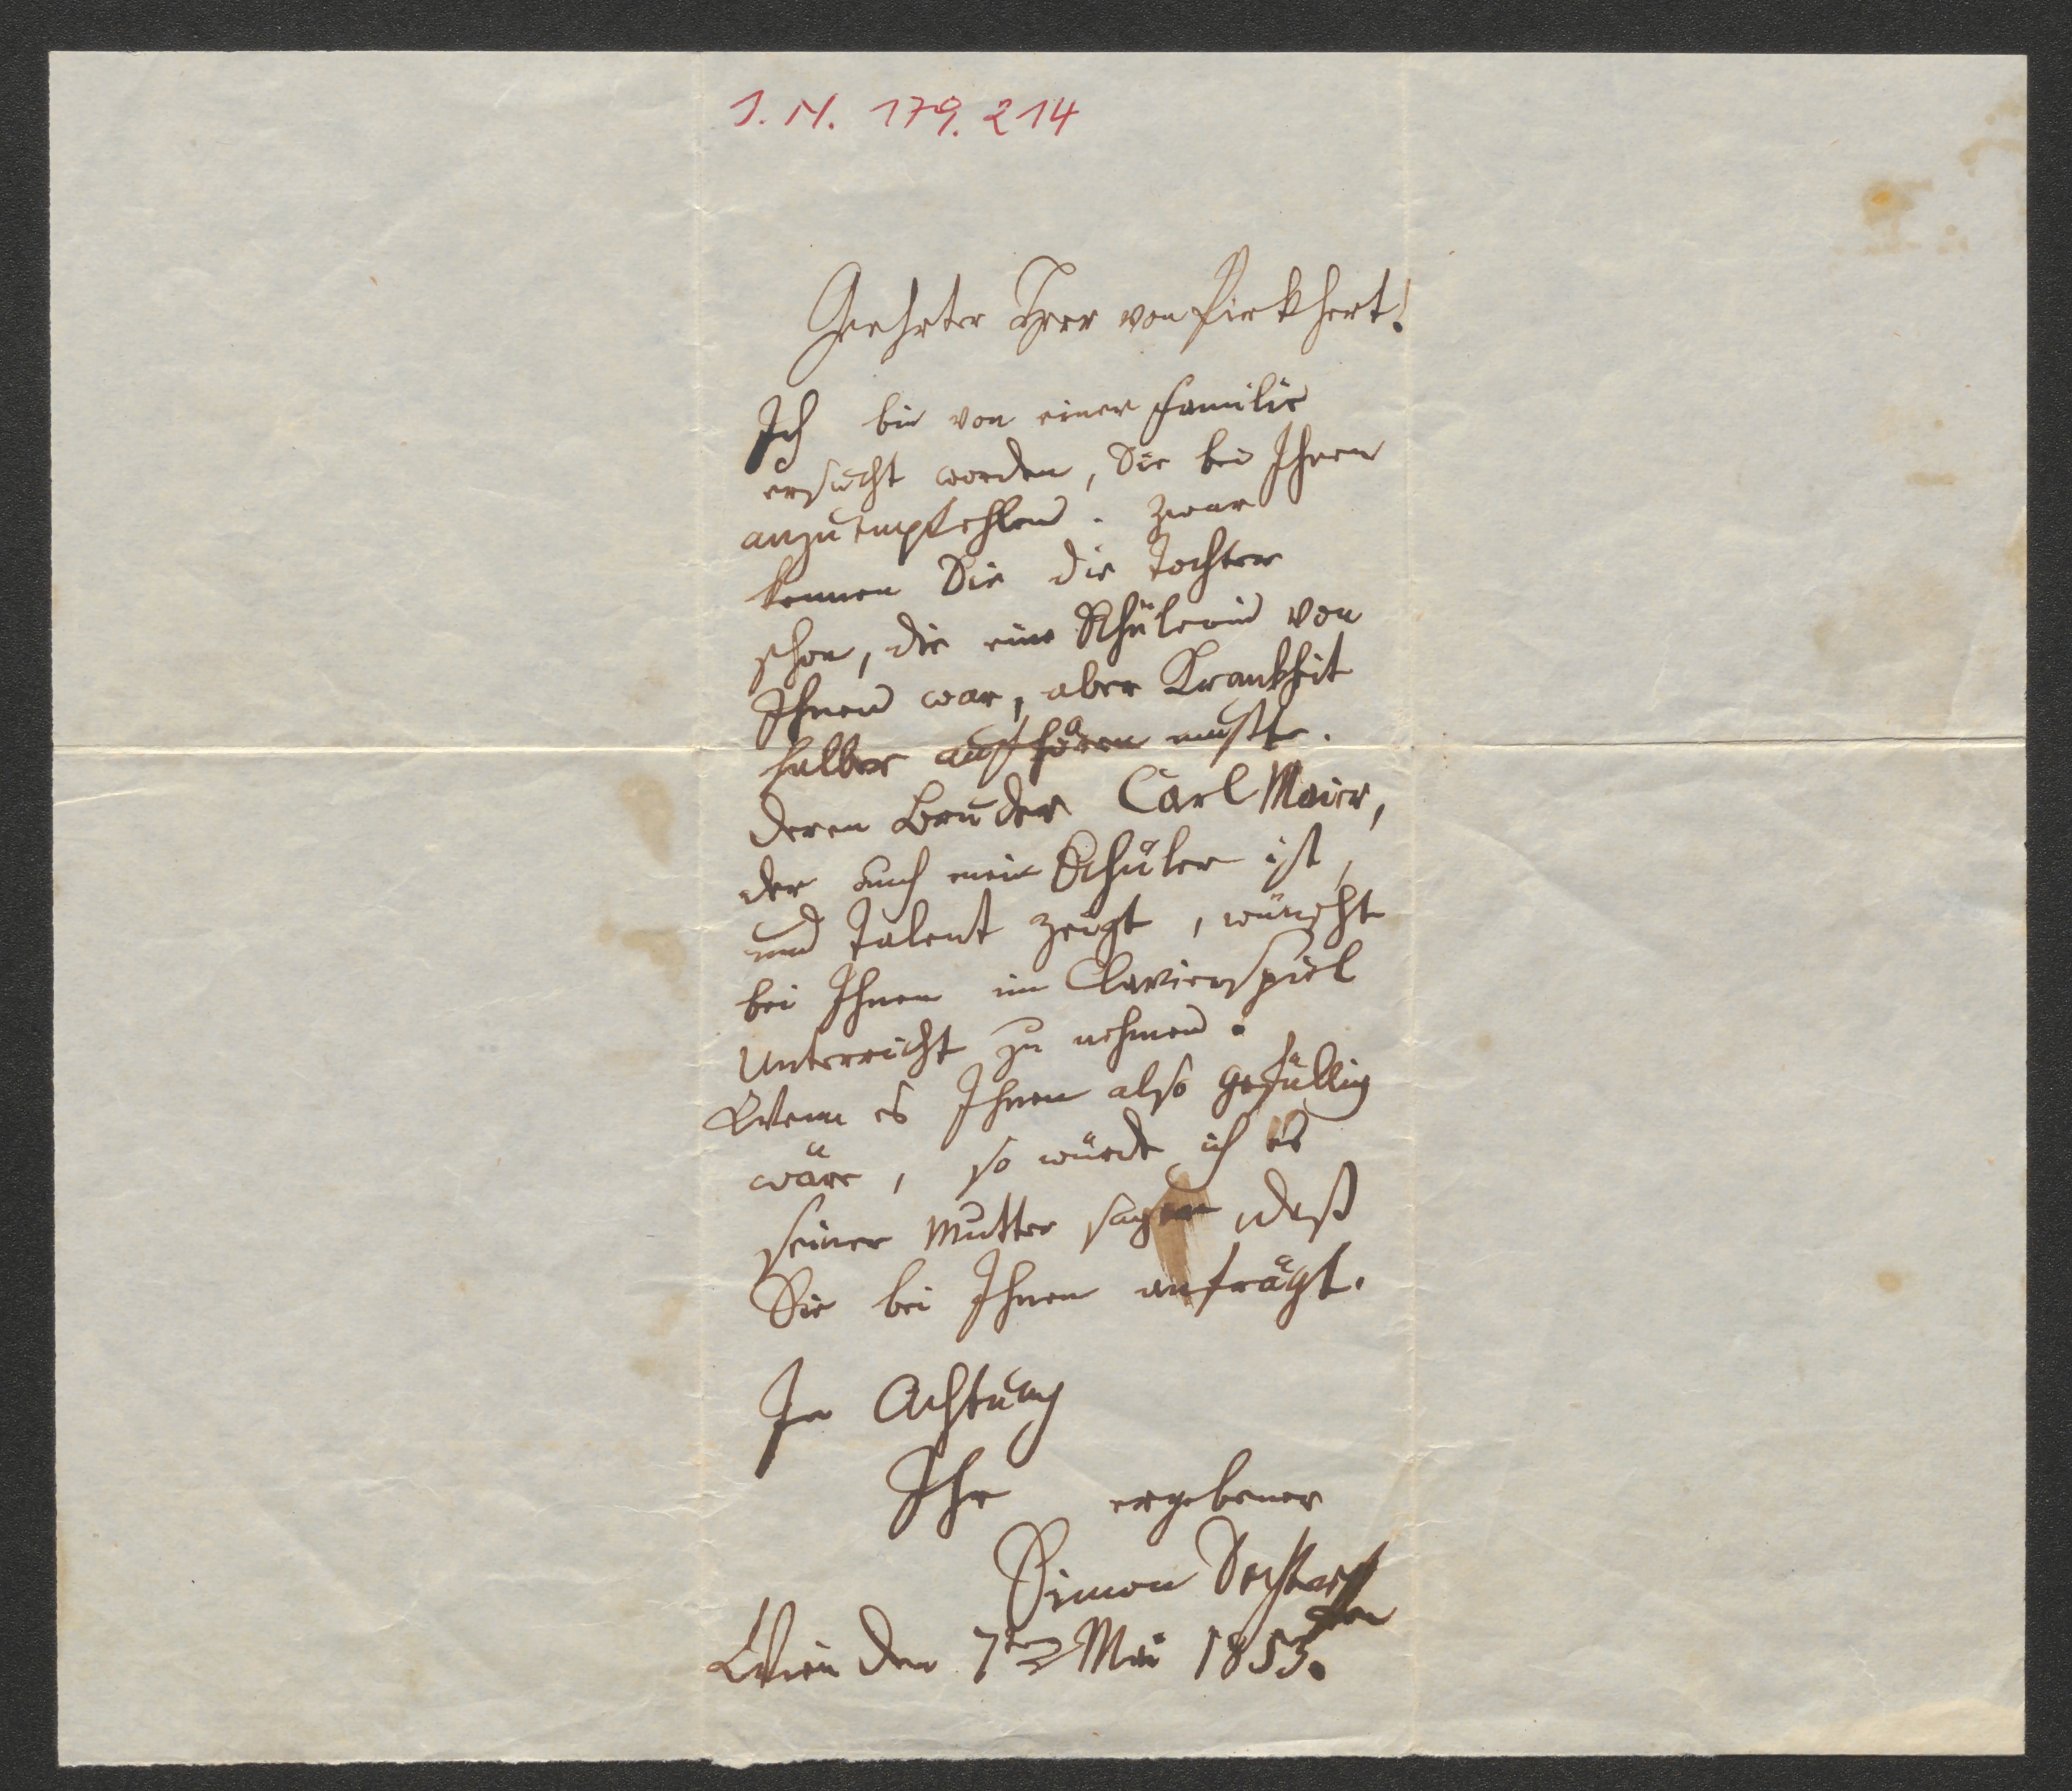 I. N. 179.214
Geehrter Herr von Pirkhert!
Ich bin von einer Familie
ersucht worden, Sie bei Ihnen
anzuempfehlen. Zwar
kennen Sie die Tochter
schon, die eine Schülerin von
Ihnen war, aber Krankheit
halber aufhören mußte.
Deren Bruder Carl Maier,
der auch mein Schüler ist,
und Talent zeigt, wünscht
bei Ihnen im Clavierspiel
Unterricht zu nehmen.
Wenn es Ihnen also gefällig
wäre, so würde ich es
seiner Mutter sagen, daß
Sie bei Ihnen anfrägt.
In Achtung
Ihr ergebener
Simon Sechter
Wien den 7ten Mai 1853.